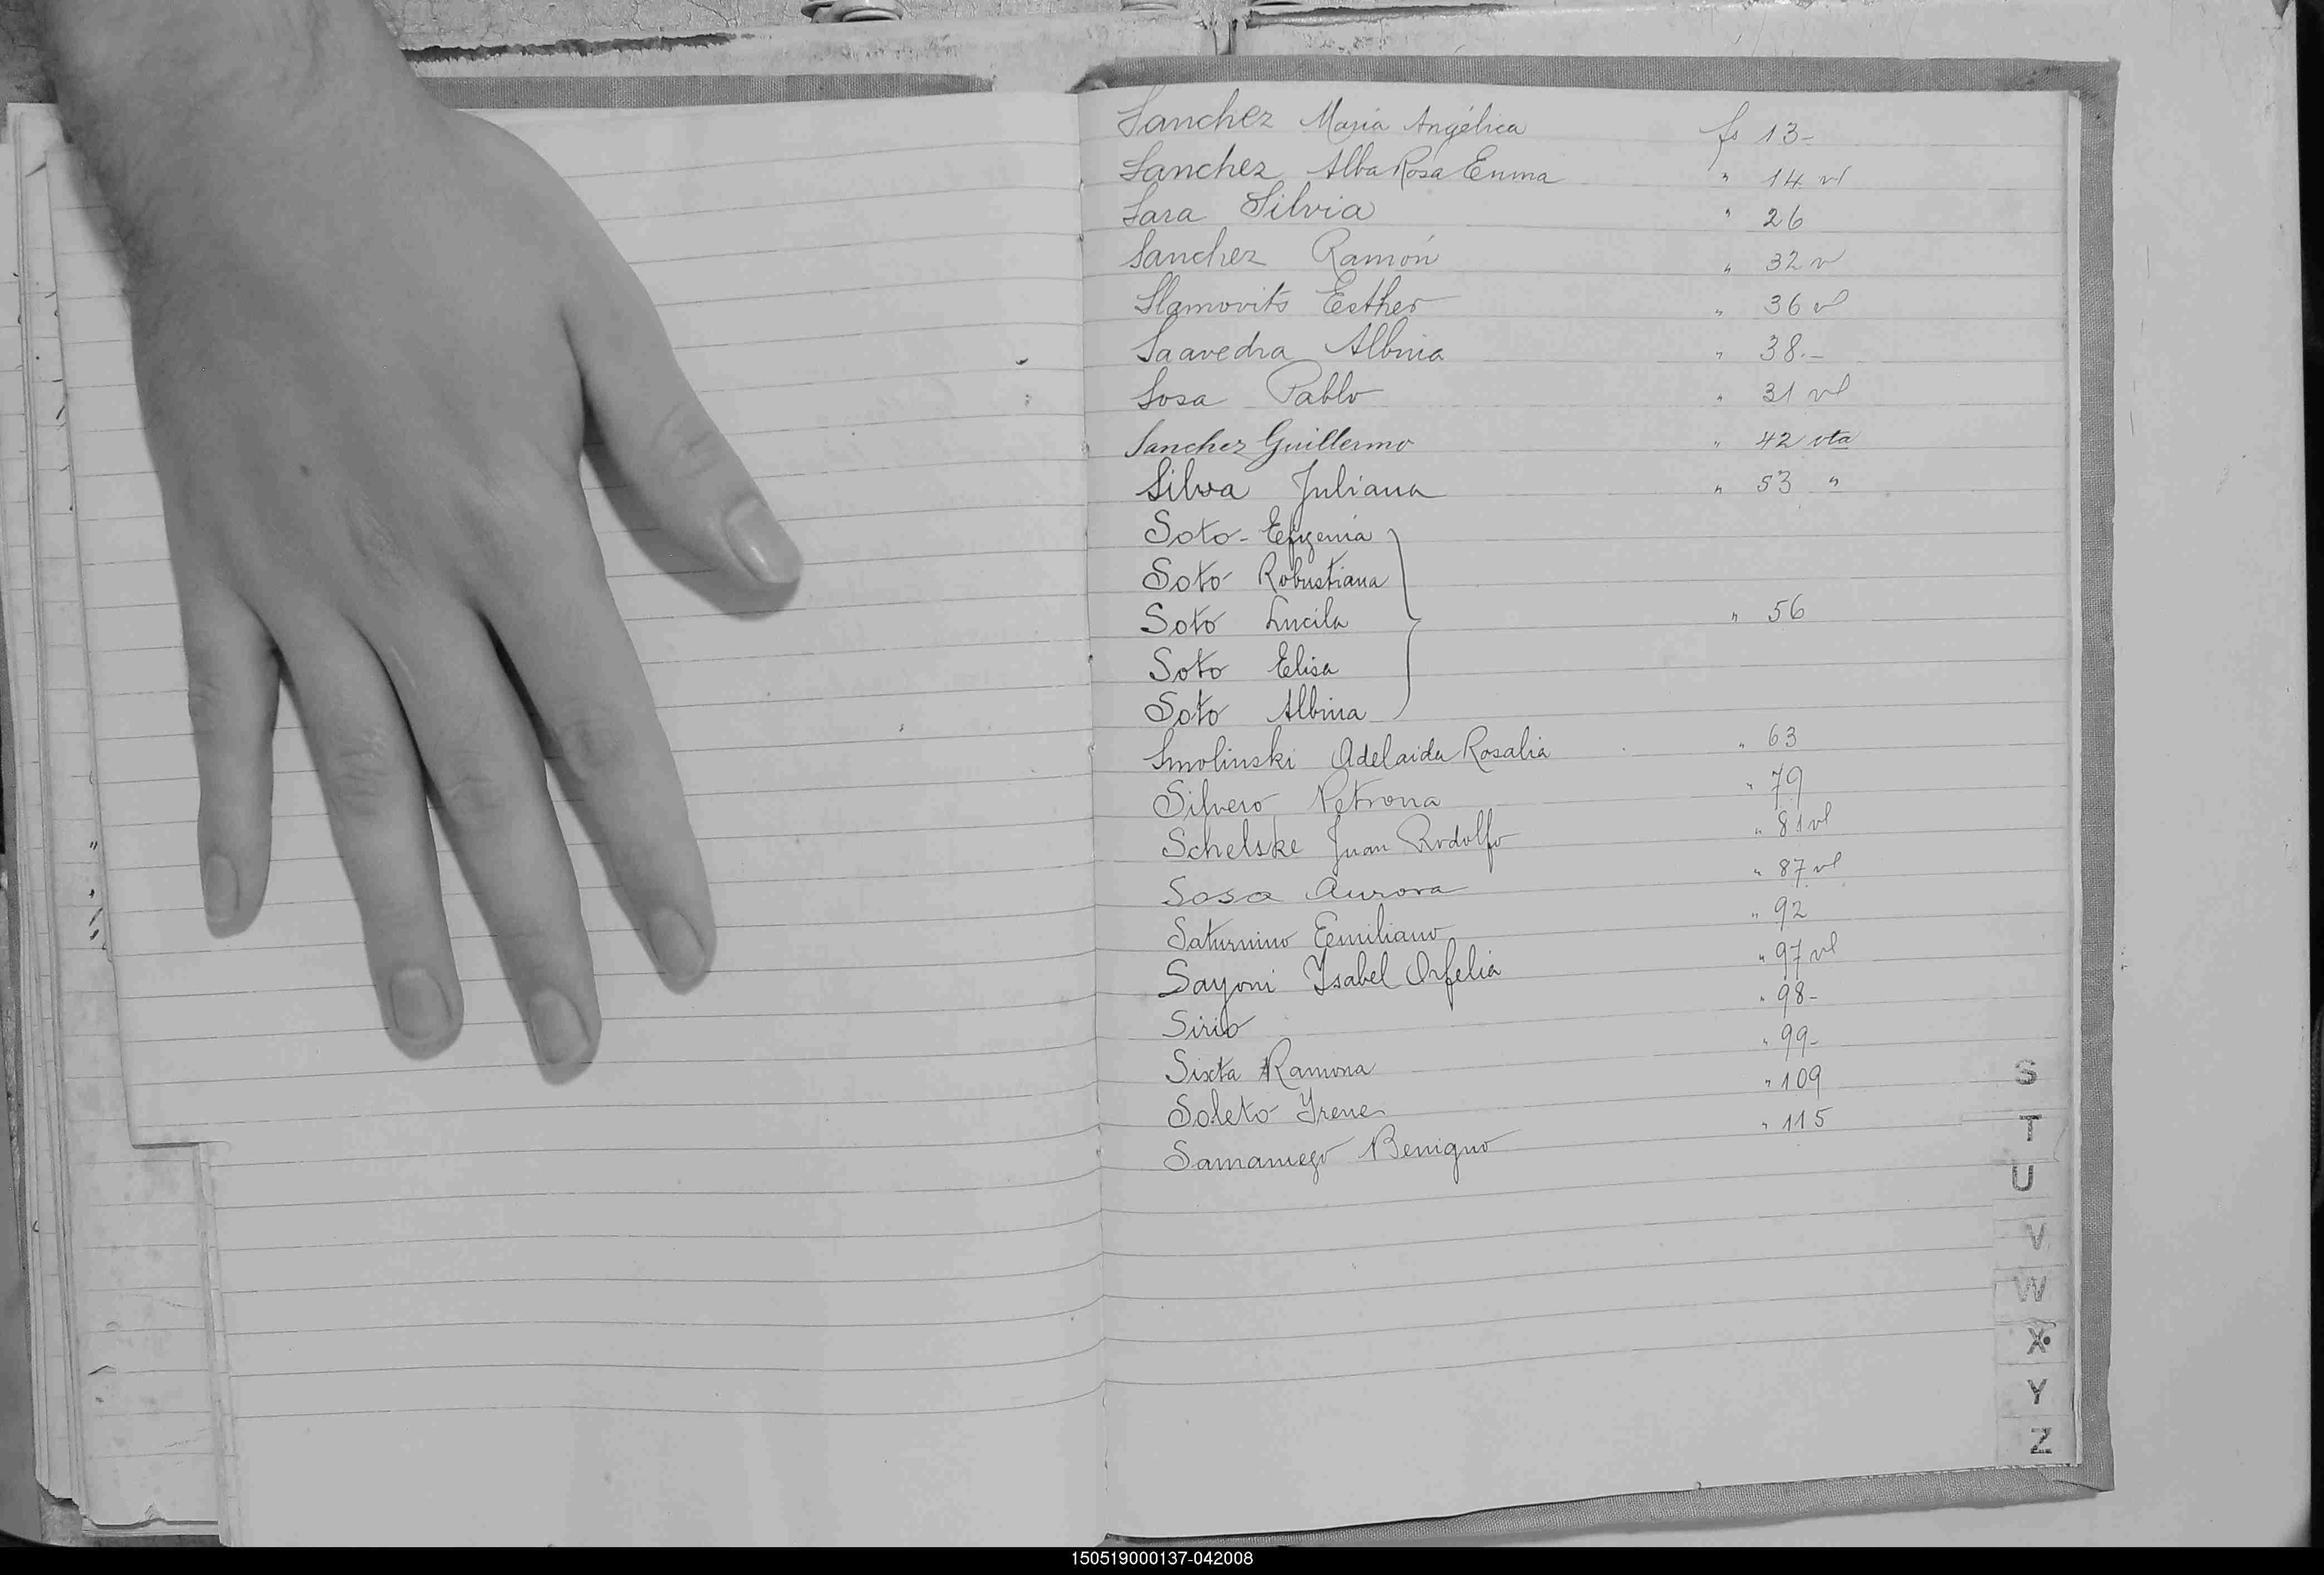 Sanchez Maria Angélica fs 13-
Sanchez Alba Rosa Emma " 14 vl
Sara Silvia " 26
Sanchez Ramón " 32 v
Slamovits Esther " 36 vl
Saavedra Albina " 38.-
Sosa Pablo " 31 vl
Sanchez Guillermo " 42 vta
Silva Juliana " 53 "
Soto - Efigenia
Soto Robustiana
Soto Lucila " 56
Soto Elisa
Soto Albina
Smolinski Adelaida Rosalia " 63
Silvero Petrona " 79
Schelske Juan Rodolfo " 81 vl
Sosa Aurora " 87 vl
Saturnino Emiliano " 92
Sayoni Ysabel Orfelia " 97 vl
Sirio " 98-
Sixta Ramona " 99-
Soleto Yrene " 109
Samaniego Benigno " 115
S
T
U
V
W
X
Y
Z
150519000137-042008